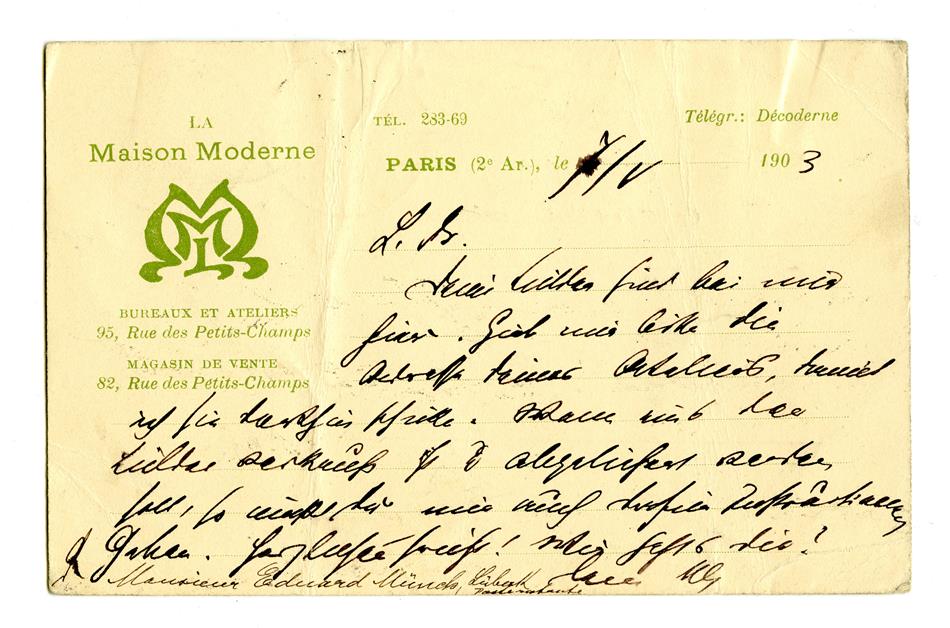 LA
Maison Moderne
ML
BUREAUX ET ATELIERS
95, Rue des Petits-Champs
MAGASIN DE VENTE
82, Rue des Petits-Champs
TÉL. 283-69
Télégr.: Décoderne
PARIS (2e Ar.), le 7/V 1903
L. Dr.
Deine Bilder sind bei mir
hier. Gieb mir bitte die
Adresse deines Ateliers, damit
ich sie dorthin schicke. Wenn eins der
Bilder verkauft & abgeliefert werden
soll, so mußt du mir auch dafür Instructionen
geben. Herzlichste Grüße! Wie gehts dir?
Monsieur Eduard Münch, Lübeck